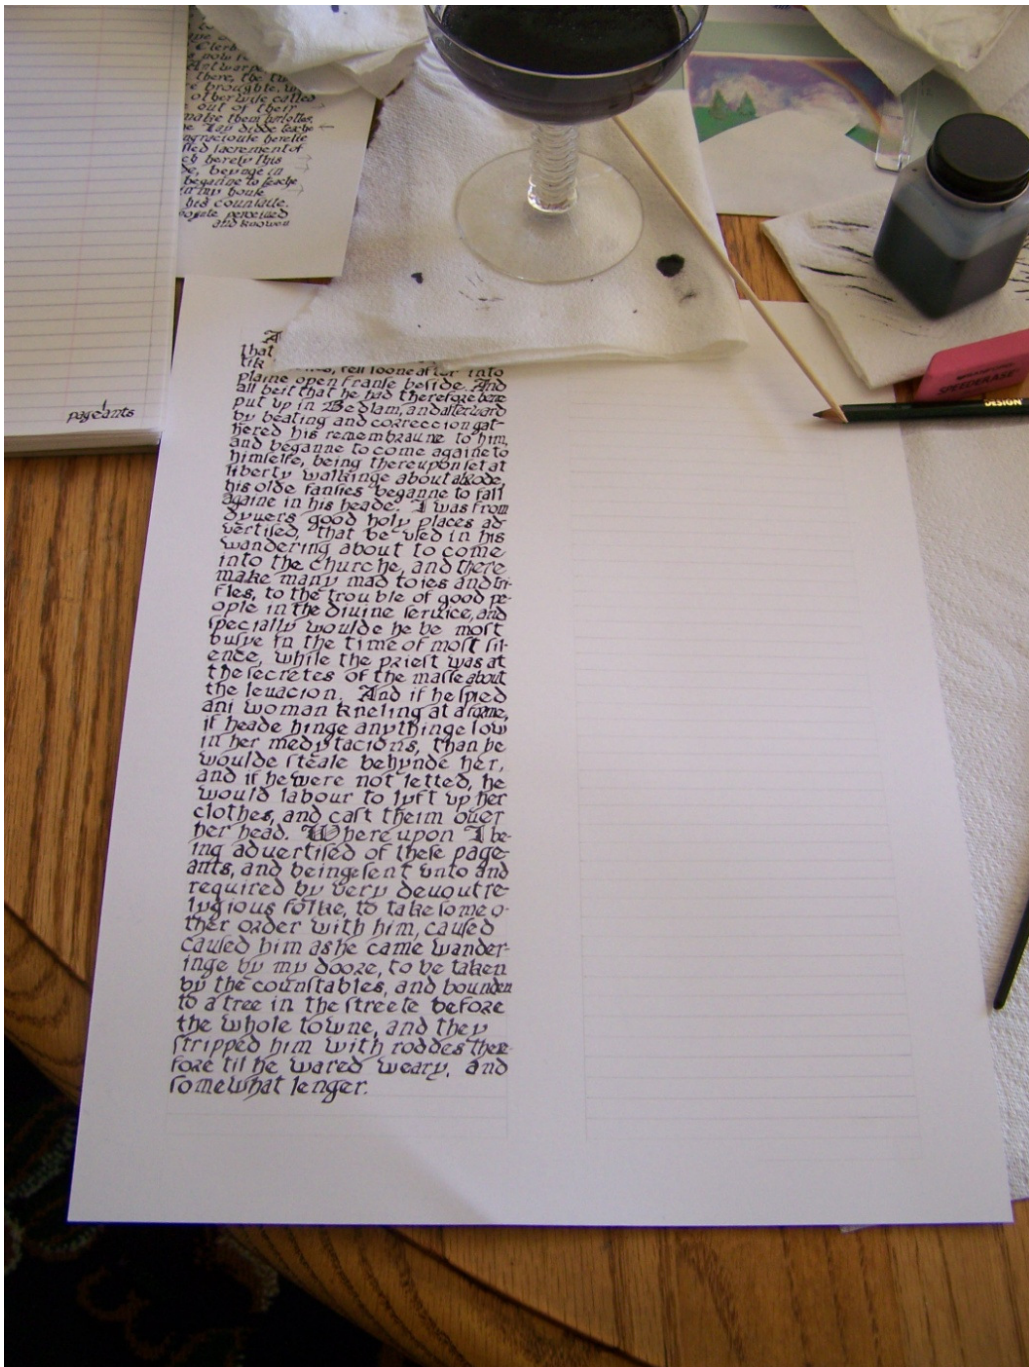 Clerk
there, the
broughte,
otherwise called
out of their
make them harlottes,
Tap didde teache
ungraciouse heresie
sacrament of
hereby this
beyinge in
beganne to teache
in my house
his countaile.
perceived
and knowen
pageants
SPEEDERASE
DESIGN
A
that
tik fell ſoone after into
plaine open franſe beſide. And
all beit that he had therefore bene
put up in Bedlam, and afterward
by beating and correccion gat-
hered his remembraune to him,
and beganne to come againe to
himſelfe, being thereupon ſet at
liberty walkinge about abrode,
his olde fanſies beganne to fall
againe in his heade. I was from
dyuers good holy places ad-
vertiſed, that he uſed in his
wandering about to come
into the churche, and there
make many mad toies and tri-
fles, to the trouble of good pe-
ople in the diuine ſeruice, and
ſpecially woulde he be moſt
buſye in the time of moſt ſil-
ence, while the prieſt was at
the ſecretes of the maſſe about
the leuacion. And if he ſpied
ani woman kneling at a forme,
if heade hinge anythinge low
in her medytacions, than he
woulde ſteale behynde her,
and if he were not letted, he
would labour to lyft up her
clothes, and caſt theim ouer
her head. Whereupon I be-
ing aduertiſed of theſe page-
ants, and being ſent unto and
required by very deuout re-
lygious folke, to take ſome o-
ther order with him, cauſed
cauſed him as he came wander-
inge by my doore, to be taken
by the counſtables, and bounden
to a tree in the ſtreete before
the whole towne, and they
ſtripped him with roddes ther-
fore til he wared weary, and
ſomewhat lenger.